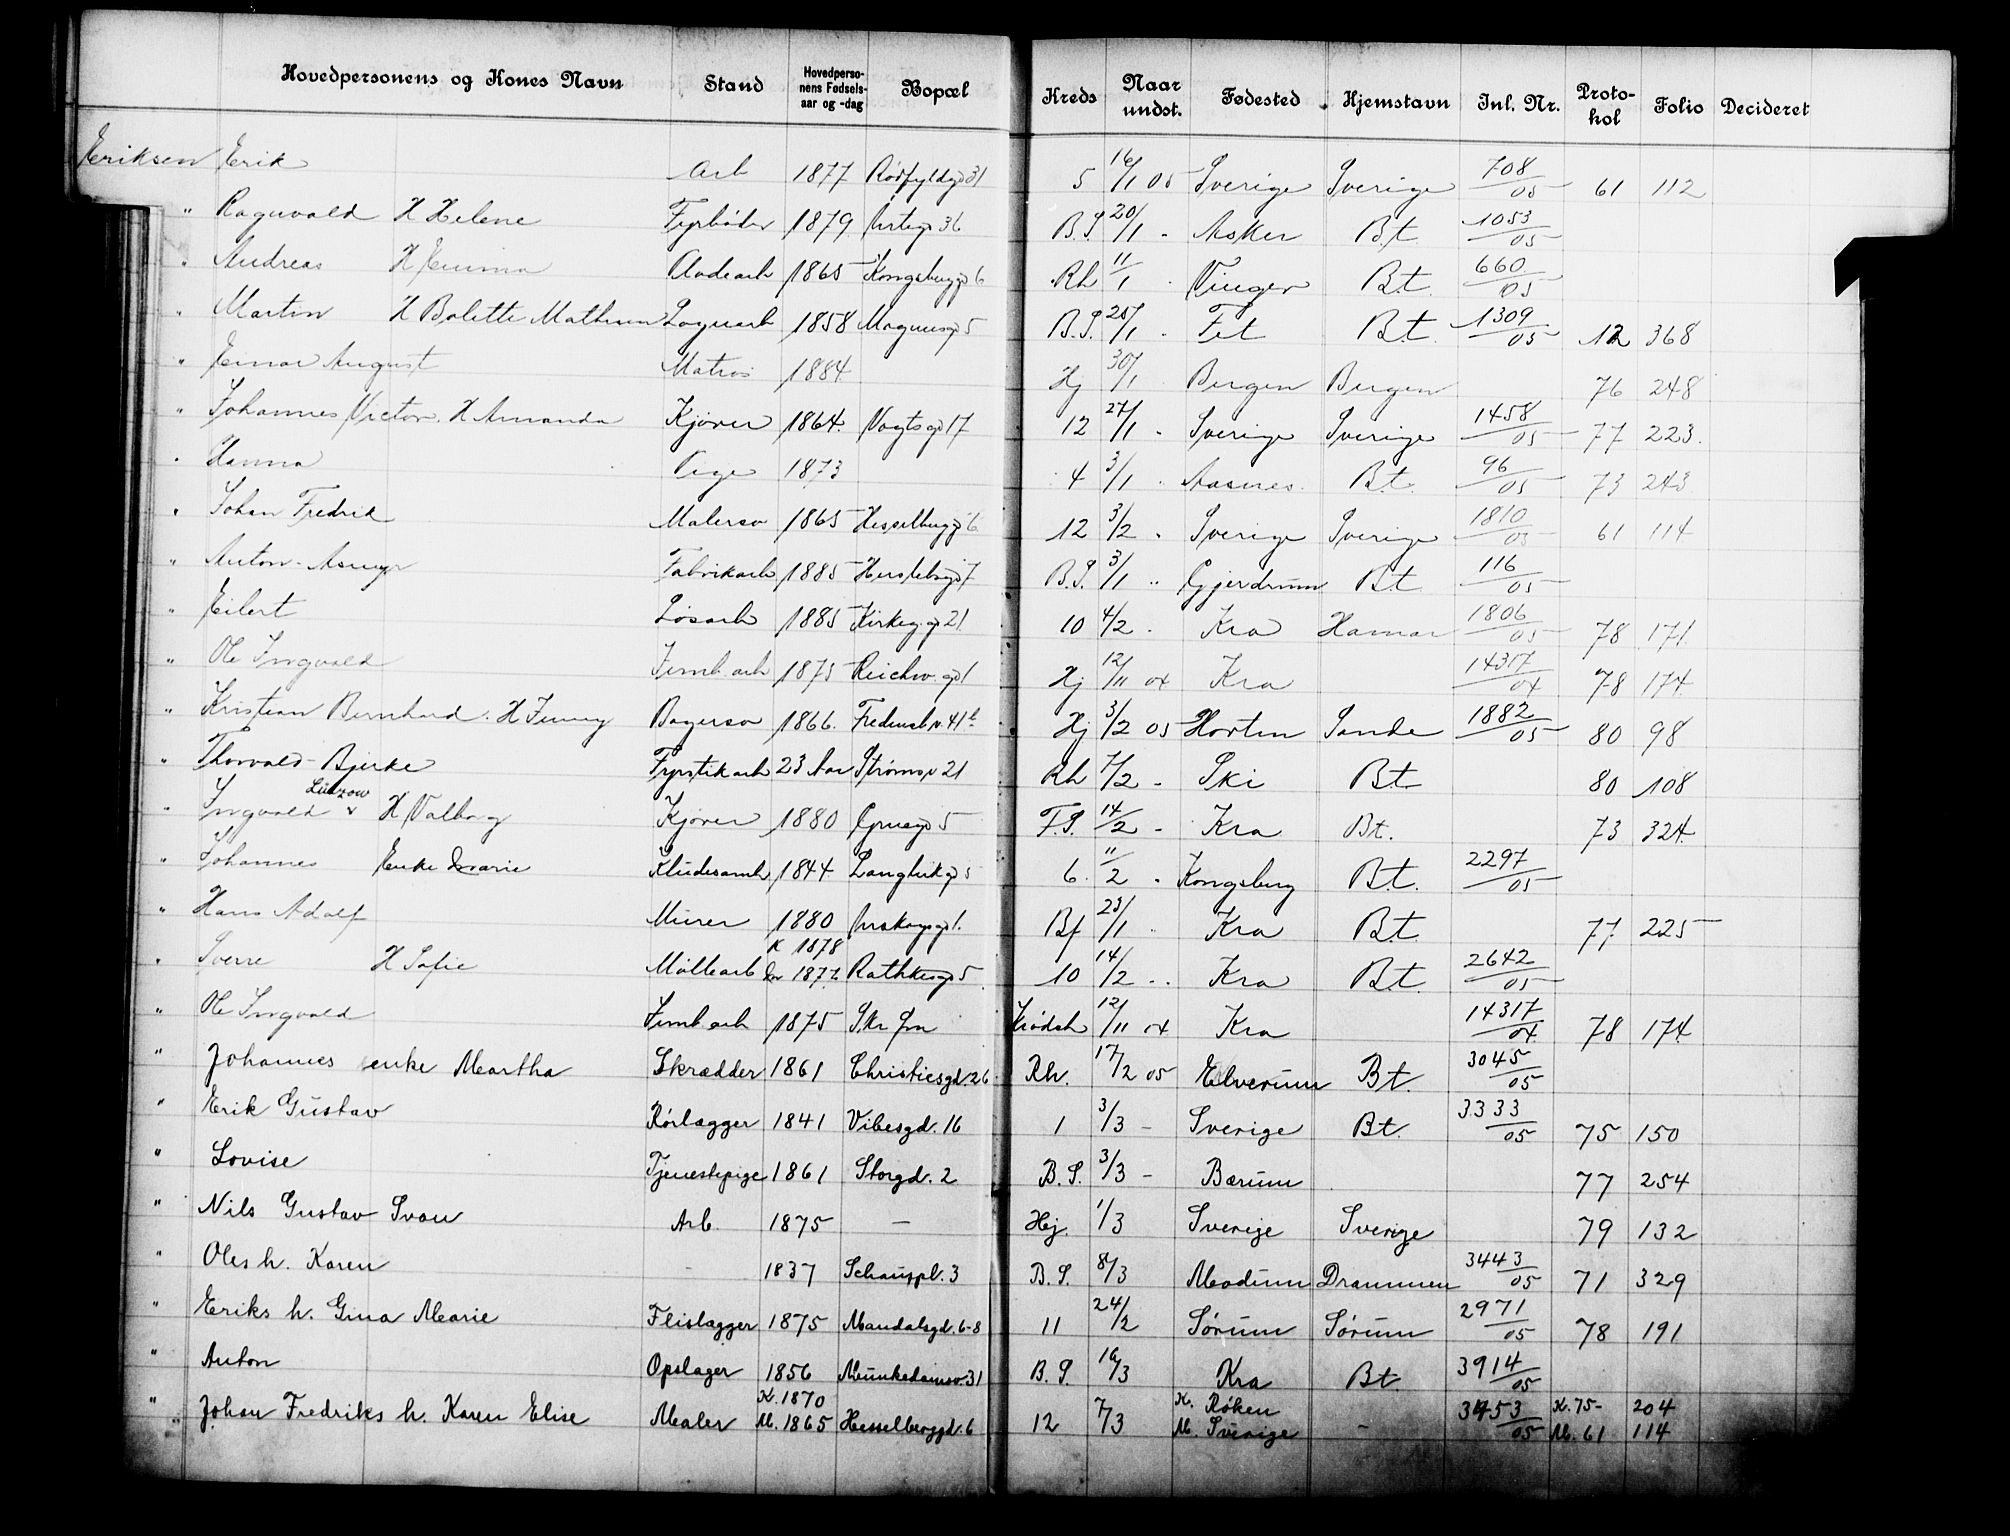 Hovedpersonens og Kones Navn Stand Hovedperso-nens Fødsels-aar og -dag Bopæl Kreds Naar undst. Fødested Hjemstavn Inl. Nr. Proto-kol Folio Decideret
Eriksen Erik Arb 1877 Rødfyldgd 31 5 16/1 05 Sverige Sverige 708/05 61 112
" Ragnvald H Helene Fyrbøder 1879 36 B.S. 20/1 - Asker B.t. 1053/05
" Andreas H Emma 1865 Kongsbergg 6 Rh 11/1 Vinger B.t. 660/05
" Martin H Bolette Mathea Lagerarb 1858 Magnusgd 5 B.S. 25/1 Fet B.t. 1309/05 12 368
" Einar August Matros 1884 Hj 30/1 Bergen Bergen 76 248
" Johannes Victor. H Amanda Kjører 1864. Vogtsgd 17 12 27/1 - Sverige Sverige 1458/05 77 223.
" Hanna Pige 1873 4 3/1 Aasnes B.t. 96/05 73 243
" Johan Fredrik Malersv 1865 Hesselbergg 6 12 3/2 - Sverige Sverige 1810/05 61 114
" Anton Fabrikarb 1885 Herslebsgd 7 B.S. 3/1 " Gjerdrum B.t 116/05
" Eilert Løsarb 1885 Kirkeg. gd 21 10 4/2 - Kra Hamar 1806/05 78 171.
" Ole Ingvald Jernb arb 1875 Reichw. gd 1 Hj 12/11 04 Kra 14317/04 78 174
" Kristian Bernhard. H Jenny Bagersv 1866. Fredensb.v. 41 b Hj 3/2 05 Horten Sande 1882/05 80 98
" Thorvald Bjerke Fyrstikarb 23 Aar Strømsv 21 Rh 7/2 - Ski B.t 80 108
" Ingvald Lützow H Valborg Kjører 1880 Gruegd 5 F.S. 14/2 - Kra Bt. 73 324.
" Johannes Enke Marie Kludesamh 1844 Langlikgd 5 6. 11/2 - Kongsberg B.t. 2297/05
" Hans Adolf Murer 1880 Bf 23/1 Kra B.t. 77. 225
" Sverre H Sofie Møllearb K 1878 M 1872 Rathkesgd 5 10 14/2 - Kra B.t. 2642/05
" Ole Ingvald Jernb arb 1875 12/11 04 Kra 14317/04 78 174.
" Johannes enke Martha Skrædder 1861 Christiesgd. 26 Rh. 17/2 05 Elverum Bt. 3045/05
" Erik Gustav Rørlægger 1841 Vibesgd. 16 1 3/3 - Sverige Bt. 3333/05 75 150
" Lovise Tjenestepige 1861 Storgd. 2 B.S. 3/3 - Bærum 77 254
" Nils Gustav Svan Arb. 1875 - Hj. 1/3 Sverige Sverige 79 132
" Oles h. Karen - 1837 Schouspl. 3 B.S. 8/3 Modum Drammen 3443/05 71 329
" Eriks h. Gina Marie Flislægger 1875 Mandalsgd. 6-8 11 24/2 Sørum Sørum 2971/05 78 191
" Anton Opslager 1856 Munkedamsv. 31 B.S. 16/3 Kra Bt. 3914/05
" Johan Fredriks h. Karen Elise Maler K. 1870 M. 1865 Hesselberggd. 6 12 7/3 K. Røken M. Sverige - 3453/05 K. 75- 204 M. 61 114